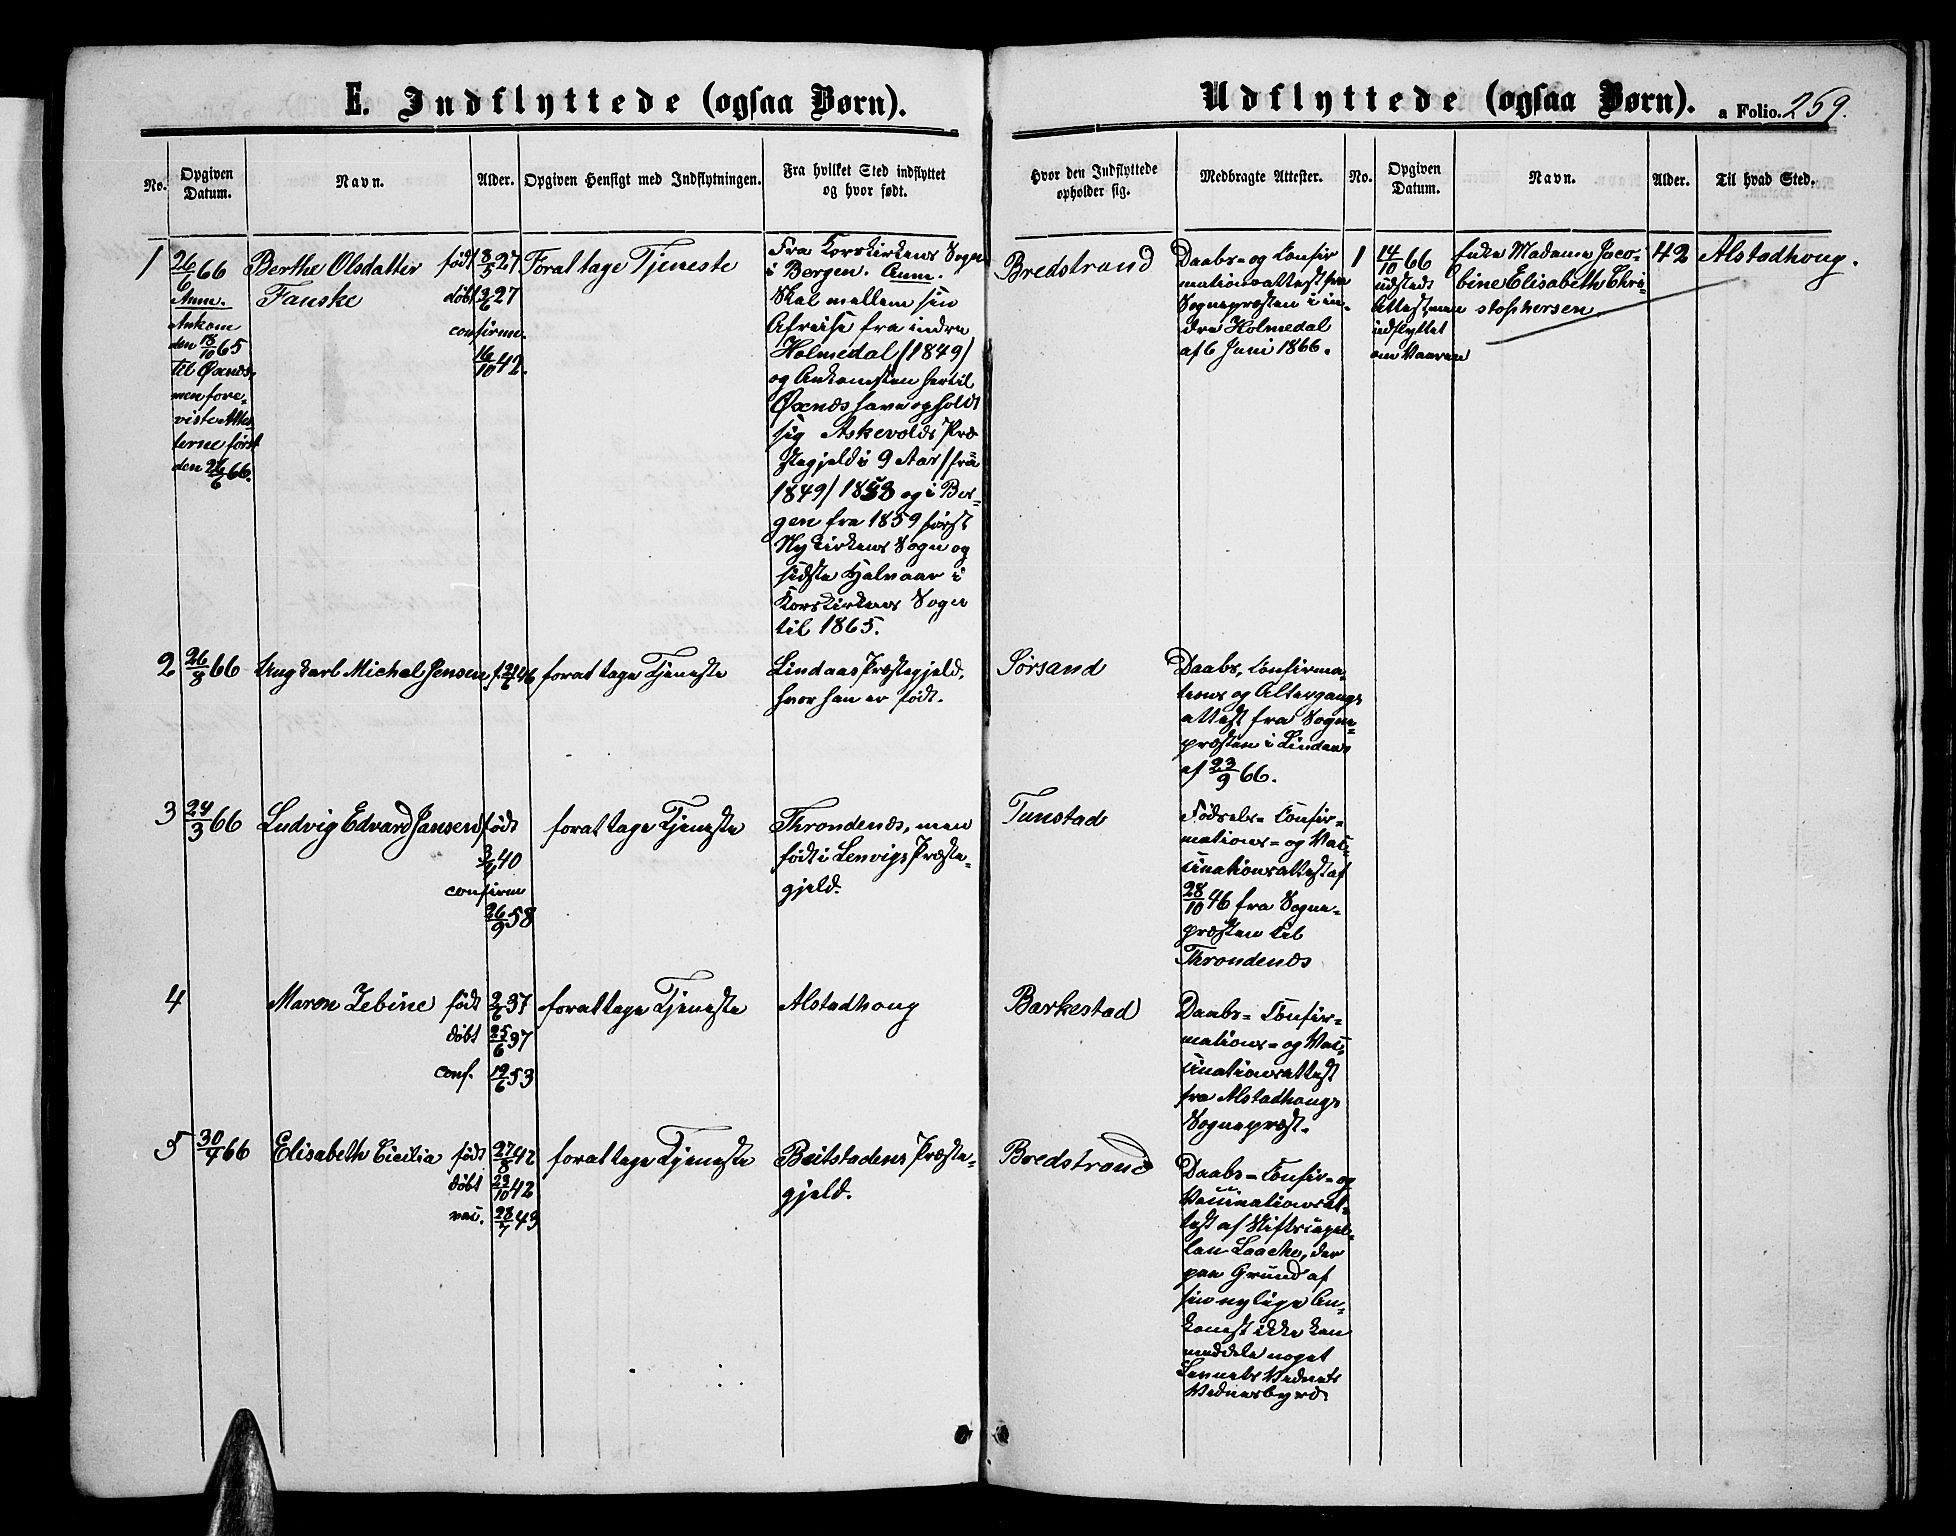 E. Indflyttede (ogsaa Børn).
Udflyttede (ogsaa Børn).
a Folio. 259.
No.
Opgiven
Datum.
Navn.
Alder.
Opgiven Hensigt med Indflytningen.
Fra hvilket Sted indflyttet
og hvor født.
Hvor den Indflyttede
opholder sig.
Medbragte Attester.
No.
Opgiven
Datum.
Navn.
Alder.
Til hvad Sted.
1
26/6 66
Anm.
Ankom
den 13/10 65
til Øxnæs
men fore-
viste Attes-
terne først
den 26/6 66.
Berthe Olsdatter født
Fauske døbt
confirme.
8/5 27
3/6 27
16/10 42.
For at tage Tjeneste
Fra Korskirkens Sogn
i Bergen. Anm.
Skal mellem sin
Afreise fra indre
Holmedal (1849)
og Ankomsten hertil
Øxnæs have opholdt
sig Askevolds Præ-
stegjeld i 9 Aar (fra
1849) 1858 og i Ber-
gen fra 1859 først
Nykirkens Sogn og
sidste Halvaar i
Korskirkens Sogn
til 1865.
Bredstrand
Daabs- og Confir
mationsattest fra
Sognepræsten i in-
dre Holmedal
af 6 Juni 1866.
1
14/10 66
udsteds
Attest, men
udflyttet
om Vaaren
Enke Madame Jaco-
bine Elisabeth Chri-
stophersen
42
Alstadhoug.
2
26/8 66
Ungkarl Michal Jensen
for at tage Tjeneste
Lindaas Præstegjeld,
hvor han er født.
Sørsand
Daabs, Confirma-
tions og Altergangs
attest fra Sogne-
præsten i Lindaas
af 23/9 66.
3
24/3 66
Ludvig Edvard Jansen født
40
confirm
26/9 58
for at tage Tjeneste
Throndenæs, men
født i Lenvigs Præste-
gjeld.
Tunstad
Fødsels- Confir-
mations- og Vac-
cinationsattest af
28/10 46 fra Sogne-
præsten til
Throndenæs
4
Maren Zebine født
døbt
conf.
2/6 37
25/6 37
19/6 53
for at tage Tjeneste
Alstadhoug
Barkestad
Daabs- Confir-
mations- og Vac-
cinationsattest
fra Alstadhougs
Sognepræst.
5
30/4 66
Elisabeth Cicilia født
døbt
vac.
27/8 42
23/10 42
28/7 43
for at tage Tjeneste
Beitstadens Præste-
gjeld.
Bredstrand
Daabs- Confir- og
Vaccinationsat-
test af Stiftscapel-
lan Laache, der
paa Grund af
sin nylige An-
komst ikke kan
meddele noget